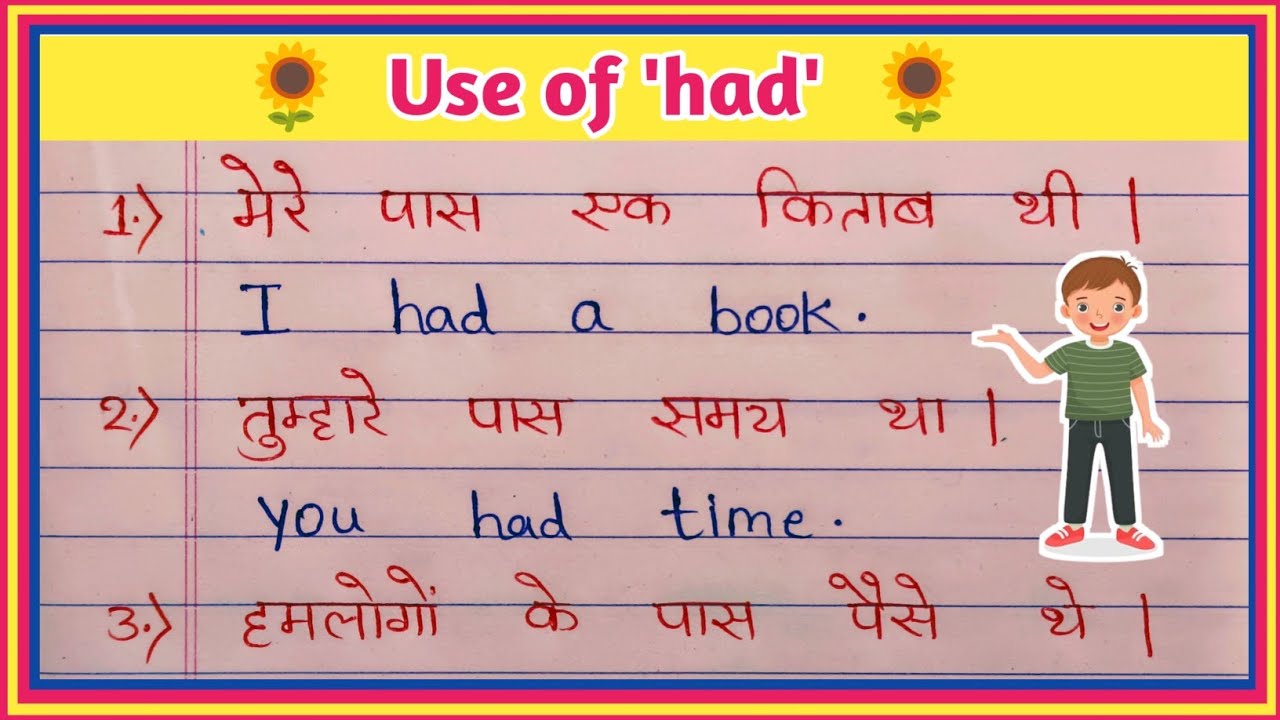 Use of 'had'
1.) मेरे पास एक किताब थी |
I had a book.
2.) तुम्हारे पास समय था |
you had time.
3.) हमलोगों के पास पैसे थे |